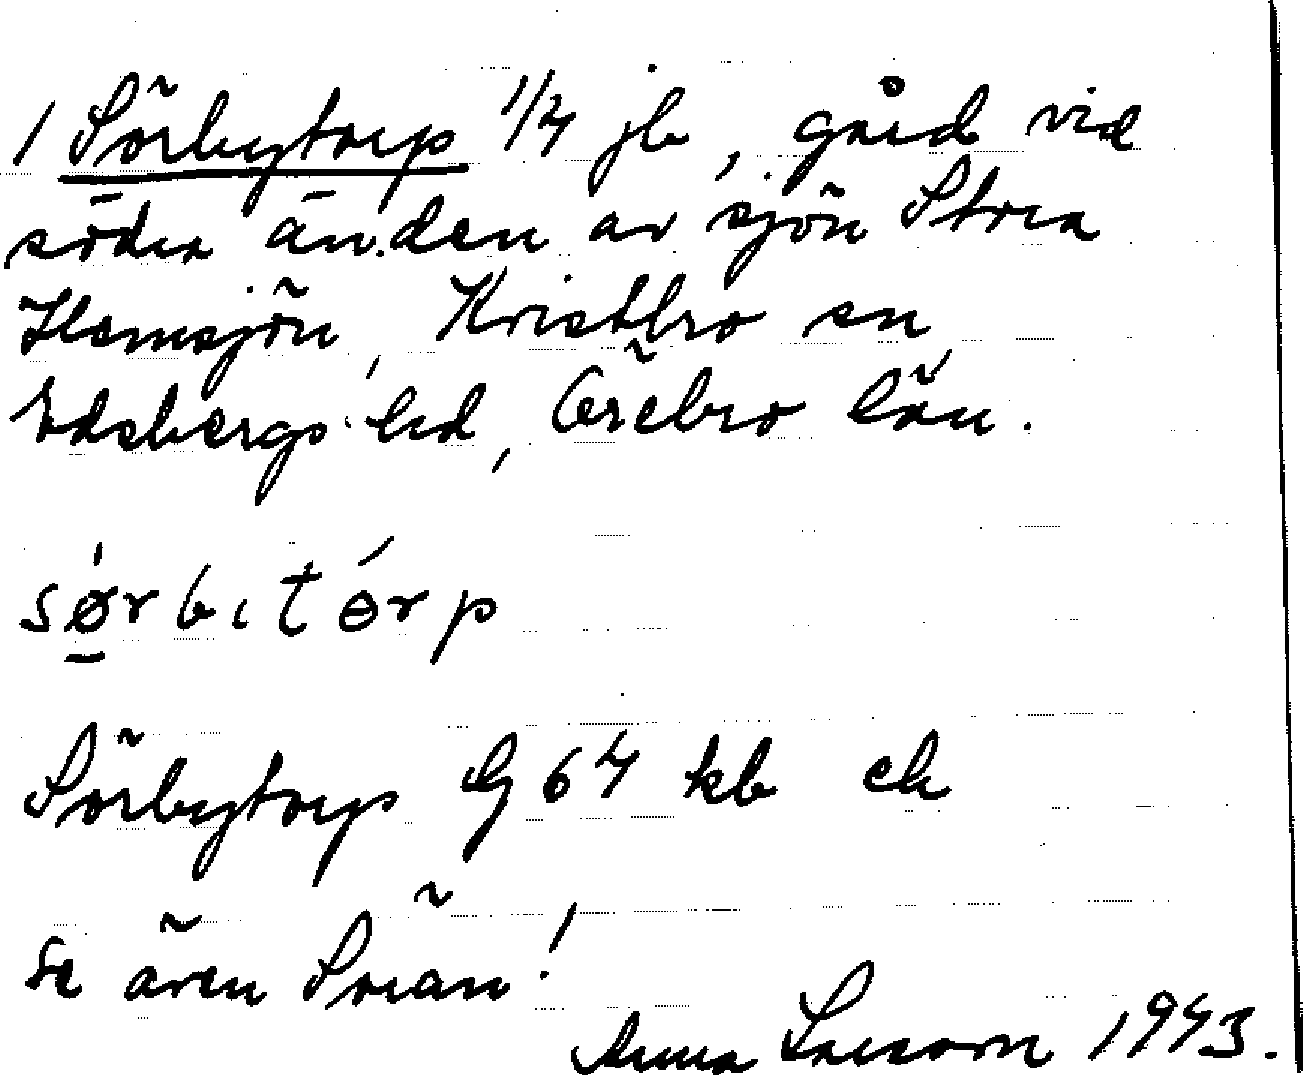 1 Sörbytorp 1/4 jb, gård vid
södra änden av sjön Stora
Hemsjön, Kvistbro sn,
Edsbergs hd, Örebro län.
sǿ̠rbɩtɵ́rp
Sörbytorp G 64 kb ek
Se även
Anna Larsson 1943.